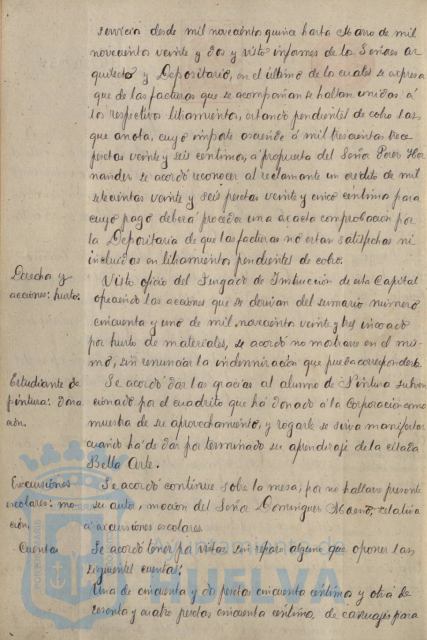 servicio desde mil novecientos quince hasta Marzo de mil
novecientos veinte y dos y visto informes de los Señores ar
quitecto y Depositario, en el último de los cuales se expresa
que de las facturas que se acompañan se hallan unidas á
los respectivos libramientos, estando pendientes de cobro las
que anota, cuyo importe asciende á mil trescientas trece
pesetas veinte y seis céntimos, á propuesta del Señor Perez Her
nandez se acordó reconocer al reclamante un crédito de mil
setecientas veinte y seis pesetas veinte y cinco céntimos para
cuyo pago deberá preceder una exacta comprobación por
la Depositaría de que las facturas no estan satisfechas ni
incluidas en libramientos pendientes de cobro.
Derechos y
acciones: hurto.
Visto oficio del Juzgado de Instrucción de esta Capital
ofreciendo las acciones que se derivan del sumario número
cincuenta y uno de mil novecientos veinte y tres incoado
por hurto de materiales, se acordó no mostrarse en el mis
mo, sin renunciar la indemnización que pueda corresponderle.
Estudiante de
pintura: dona
ción.
Se acordó dar las gracias al alumno de Pintura subven
cionado por el cuadrito que ha donado á la Corporación como
muestra de su aprovechamiento, y rogarle se sirva manifestar
cuando ha de dar por terminado su aprendizaje de la citada
Bella Arte.
Excursiones
escolares: mo
ción.
Se acordó continúe sobre la mesa, por no hallarse presente
su autor, moción del Señor Dominguez Roqueta, relativa
á excursiones escolares.
Cuentas
Se acordó tener por vistas sin reparo alguno que oponer las
siguientes cuentas:
Una de cincuenta y dos pesetas cincuenta céntimos y otra de
sesenta y cuatro pesetas cincuenta céntimos, de carruajes para
Ayuntamiento de
HUELVA